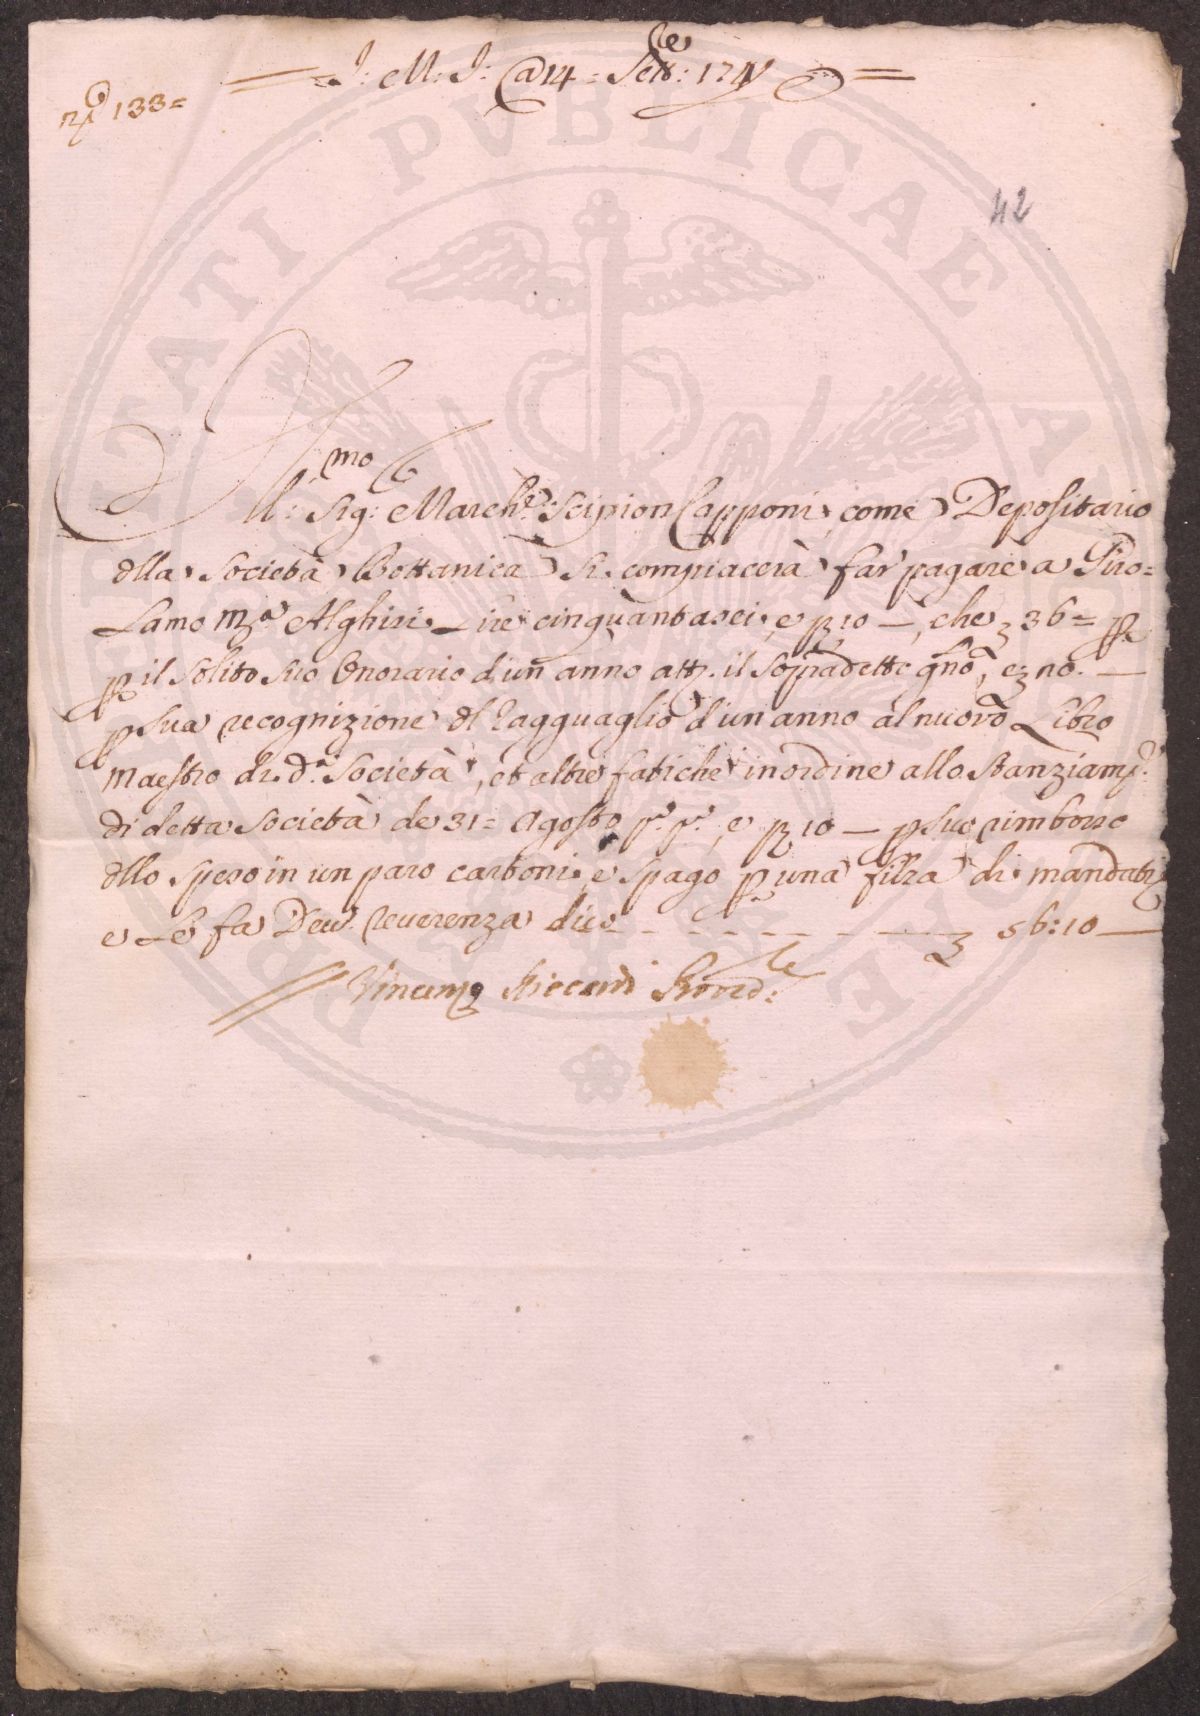 J: M: J: @ 14 = Sett:re 174
no 133 =
42
Ill:mo Sig: March:e Scipion Capponi, come Depositario
dlla Società Bottanica si compiacerà far pagare a Giro=
lamo M:a Alghisi Lire cinquantasei, e 10 —, che 36 = p
p il solito suo Onorario d'un anno att. il sopradetto gno, e 20. —
p sua recognizione dl ragguaglio d'un anno al nuovo Libro
Maestro di d:a Società, et altre fatiche in ordine allo Stanziam:to
di detta Società de 31 = Agosto p:o p:o, e 10 — p suo rimborso
dllo speso in un paro cartoni e spago p una filza di mandati
e Le fa Dev: reverenza dico - - - - - 56:10 —
Vincenzo Riccardi Provd:re
VBERTATI PVBLICAE